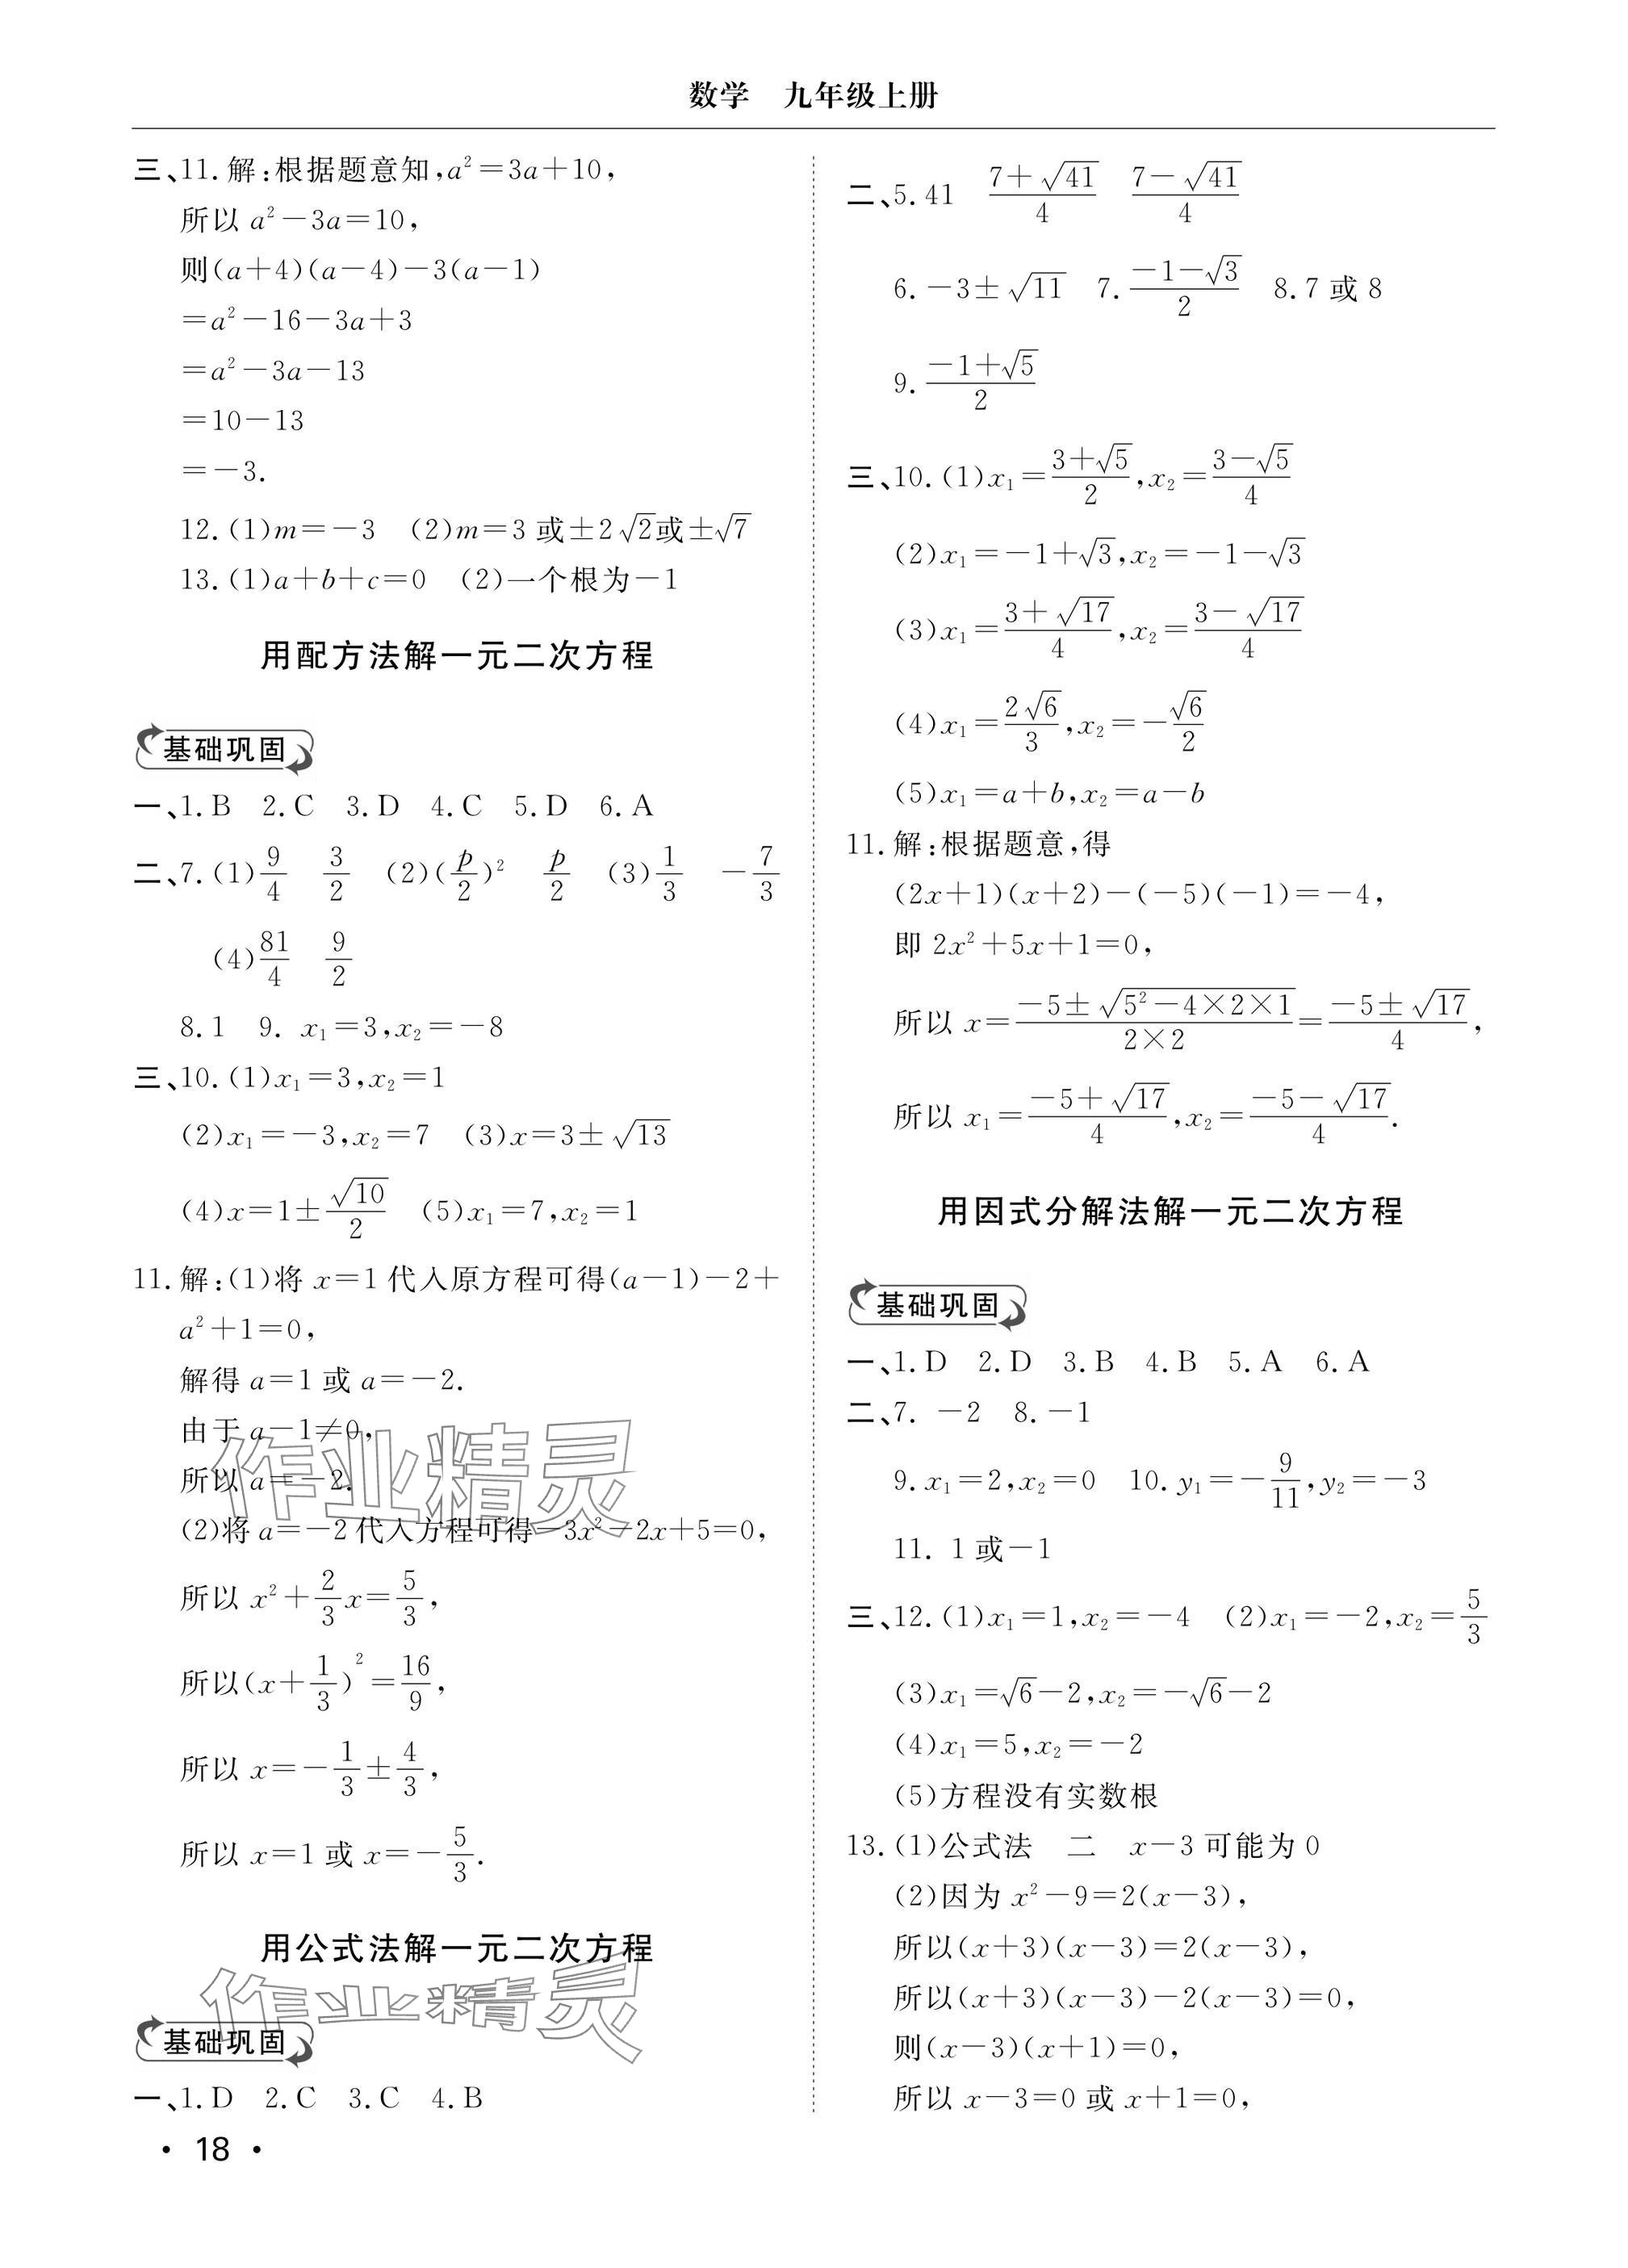 数学　九年级上册
三、11.解:根据题意知,a²=3a+10,
所以 a²-3a=10,
则(a+4)(a-4)-3(a-1)
=a²-16-3a+3
=a²-3a-13
=10-13
=-3.
12.(1)m=-3　(2)m=3 或±2√2或±√7
13.(1)a+b+c=0　(2)一个根为-1
用配方法解一元二次方程
基础巩固
一、1.B　2.C　3.D　4.C　5.D　6.A
二、7.(1)9/4　3/2　(2)(p/2)²　p/2　(3)1/3　-7/3
(4)81/4　9/2
8.1　9. x₁=3,x₂=-8
三、10.(1)x₁=3,x₂=1
(2)x₁=-3,x₂=7　(3)x=3±√13
(4)x=1±√10/2　(5)x₁=7,x₂=1
11.解:(1)将 x=1 代入原方程可得(a-1)-2+
a²+1=0,
解得 a=1 或 a=-2.
由于 a-1≠0,
所以 a=-2.
(2)将 a=-2 代入方程可得-3x²-2x+5=0,
所以 x²+2/3x=5/3,
所以(x+1/3)²=16/9,
所以 x=-1/3±4/3,
所以 x=1 或 x=-5/3.
用公式法解一元二次方程
基础巩固
一、1.D　2.C　3.C　4.B
· 18 ·
二、5.41　(7+√41)/4　(7-√41)/4
6.-3±√11　7.(-1-√3)/2　8.7 或 8
9.(-1+√5)/2
三、10.(1)x₁=(3+√5)/2,x₂=(3-√5)/4
(2)x₁=-1+√3,x₂=-1-√3
(3)x₁=(3+√17)/4,x₂=(3-√17)/4
(4)x₁=2√6/3,x₂=-√6/2
(5)x₁=a+b,x₂=a-b
11.解:根据题意,得
(2x+1)(x+2)-(-5)(-1)=-4,
即 2x²+5x+1=0,
所以 x=(-5±√(5²-4×2×1))/(2×2)=(-5±√17)/4,
所以 x₁=(-5+√17)/4,x₂=(-5-√17)/4.
用因式分解法解一元二次方程
基础巩固
一、1.D　2.D　3.B　4.B　5.A　6.A
二、7. -2　8.-1
9.x₁=2,x₂=0　10.y₁=-9/11,y₂=-3
11. 1 或-1
三、12.(1)x₁=1,x₂=-4　(2)x₁=-2,x₂=5/3
(3)x₁=√6-2,x₂=-√6-2
(4)x₁=5,x₂=-2
(5)方程没有实数根
13.(1)公式法　二　x-3 可能为 0
(2)因为 x²-9=2(x-3),
所以(x+3)(x-3)=2(x-3),
所以(x+3)(x-3)-2(x-3)=0,
则(x-3)(x+1)=0,
所以 x-3=0 或 x+1=0,
作业精灵
作业精灵